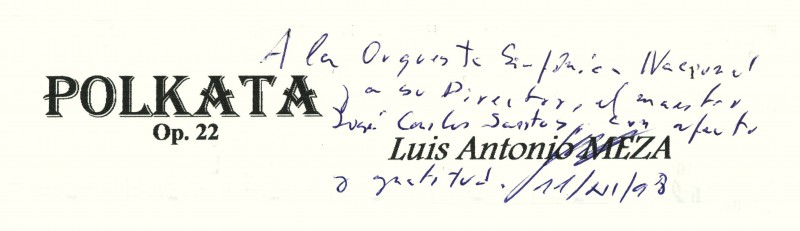 A la Orquesta Sinfónica Nacional
POLKATA
y a su Director, el maestro
José Carlos Santos, con afecto
Op. 22
Luis Antonio MEZA
y gratitud. 11/XI/98